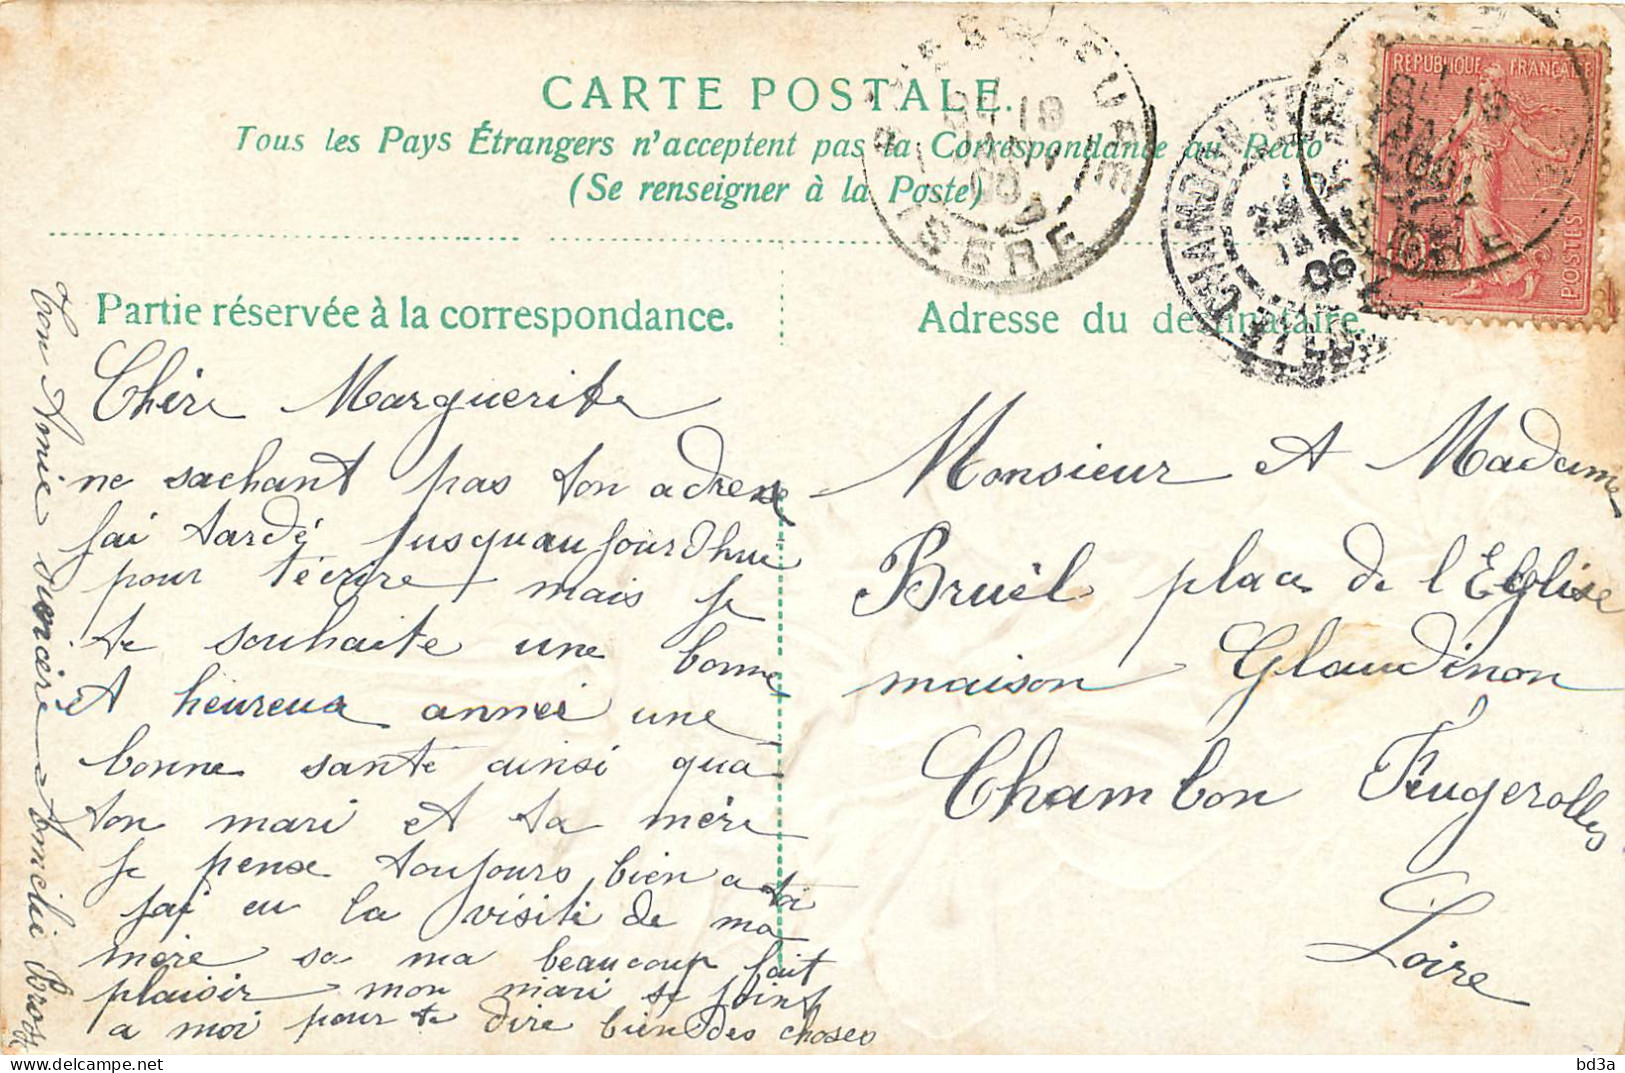 CARTE POSTALE.
Tous les Pays Étrangers n'acceptent pas la Correspondance au Recto
(Se renseigner à la Poste)
ISERE
CHAMBON
06
REPUBLIQUE FRANÇAISE
POSTES
Partie réservée à la correspondance.
Chère Marguerite
ne sachant pas ton adresse
jai tardé jusquaujourdhui
pour técrire mais je
te souhaite une bonne
et heureux année une
bonne santé ainsi quà
ton mari et ta mère
je pense toujours bien a toi
jai eu la visite de ma
mère sa ma beaucoup fait
plaisir mon mari se joint
a moi pour te dire bien des choses
Ton Amie sincère
Adresse du destinataire.
Monsieur et Madame
Bruël place de l'Eglise
maison Glaudinon
Chambon Feugerolles
Loire
bd3a